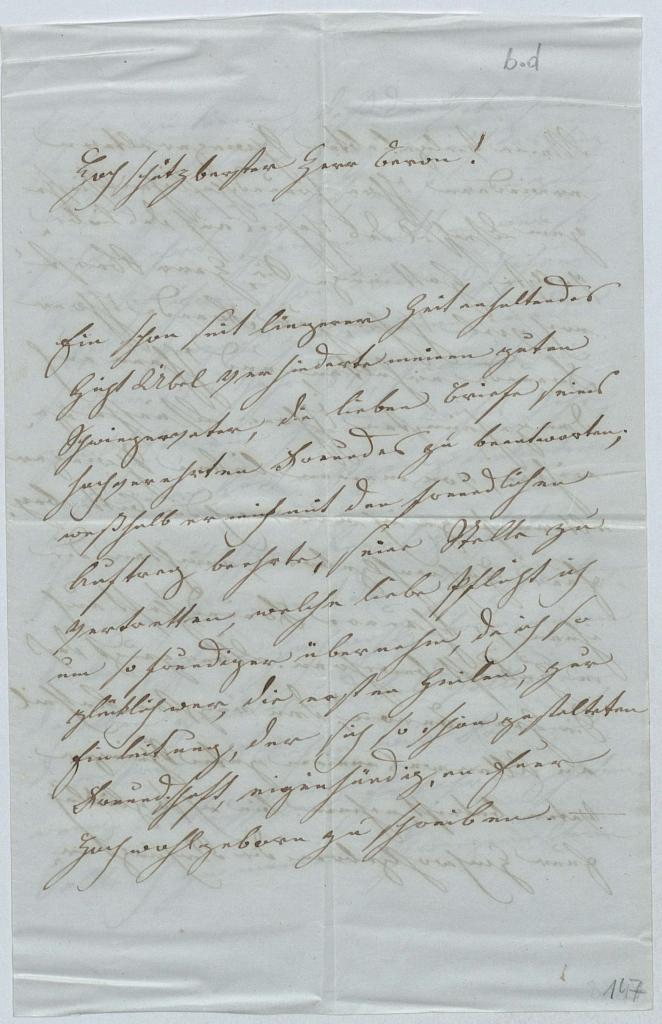 b.d
Hochschätzbarster Herr Baron!
Ein schon seit längerer Zeit anhaltendes
Gicht Übel verhinderte meinen guten
Schwiegervater, die lieben Briefe seines
hochverehrten Freundes zu beantworten,
weßhalb er mich mit den freundlichen
Auftrag beehrte, seine Stelle zu
vertretten, welche liebe Pflicht ich
um so freudiger übernehm, da ich so
glücklich war, die ersten Zeilen, zur
Einleitung, der sich so schön gestalteten
Freundschaft, eigenhändig, an Euer
Hochwohlgeborn zu schreiben
147